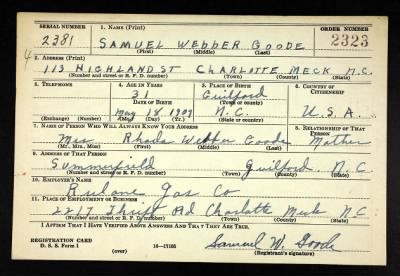 SERIAL NUMBER 1. NAME (Print) ORDER NUMBER
2381 SAMUEL WEBBER GOODE 2323
(First) (Middle) (Last)
2. ADDRESS (Print)
113 HIGHLAND ST CHARLOTTE MECK N.C.
(Number and street or R. F. D. number) (Town) (County) (State)
3. TELEPHONE 4. AGE IN YEARS 5. PLACE OF BIRTH 6. COUNTRY OF CITIZENSHIP
31 Guilford
DATE OF BIRTH (Town or county)
May 18, 1909 N.C. U.S.A.
(Exchange) (Number) (Mo.) (Day) (Yr.) (State or country)
7. NAME OF PERSON WHO WILL ALWAYS KNOW YOUR ADDRESS 8. RELATIONSHIP OF THAT PERSON
Mrs Rhoda Webber Goode Mother
(Mr. Mrs. Miss) (First) (Middle) (Last)
9. ADDRESS OF THAT PERSON
Summerfield Guilford N.C.
(Number and street or R. F. D. number) (Town) (County) (State)
10. EMPLOYER'S NAME
Rulane Gas Co
11. PLACE OF EMPLOYMENT OR BUSINESS
2217 Thrift Rd Charlotte Meck N.C.
(Number and street or R. F. D. number) (Town) (County) (State)
I AFFIRM THAT I HAVE VERIFIED ABOVE ANSWERS AND THAT THEY ARE TRUE.
REGISTRATION CARD
D. S. S. Form 1 16—17105 Samuel W. Goode
(over) (Registrant's signature)